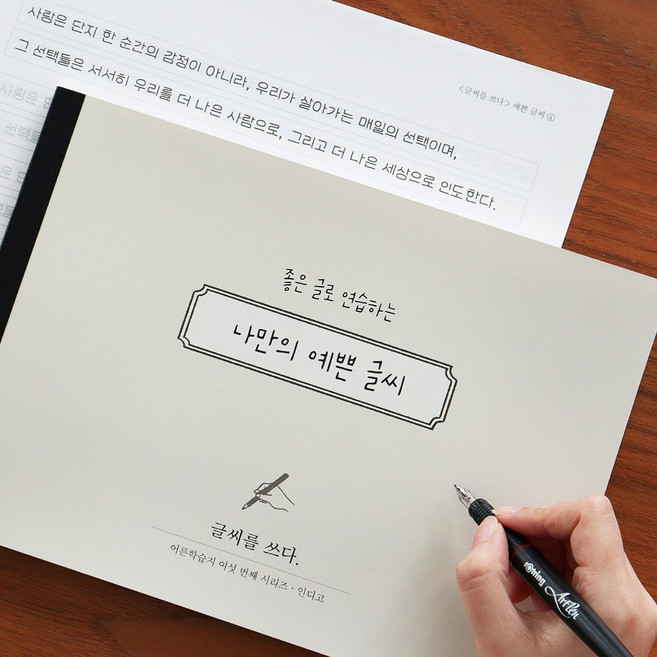 <글씨를 쓰다> 예쁜 글씨 ①
사랑은 단지 한 순간의 감정이 아니라, 우리가 살아가는 매일의 선택이며,
그 선택들은 서서히 우리를 더 나은 사람으로, 그리고 더 나은 세상으로 인도한다.
사랑은
선택들
좋은 글로 연습하는
나만의 예쁜 글씨
글씨를 쓰다.
어른학습지 여섯 번째 시리즈 · 인디고
rotring ArtPen